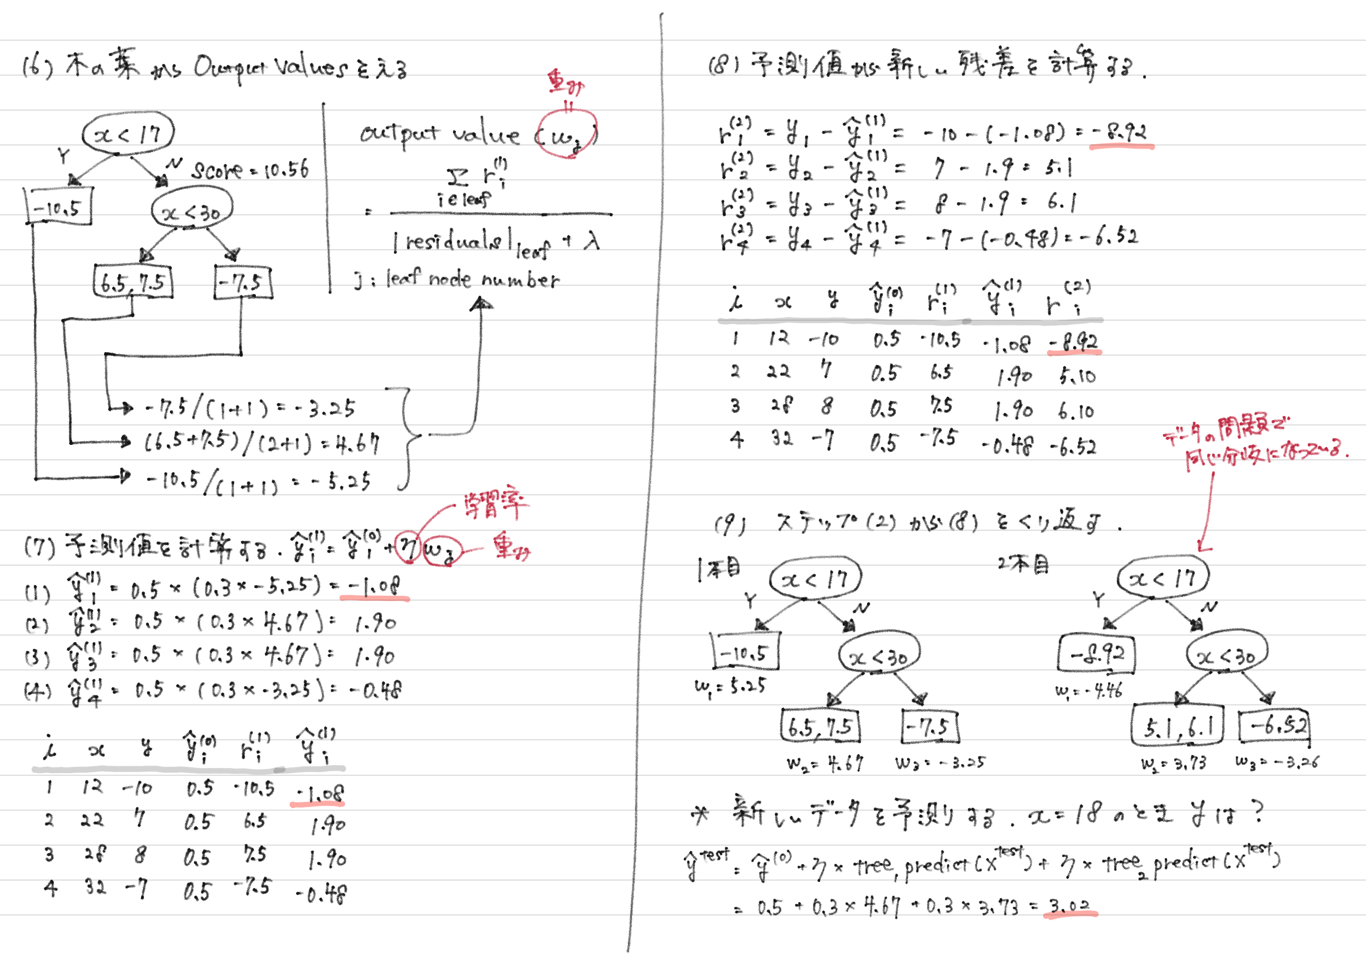 (6) 木の葉から Output Valuesを考える
x < 17
Y
N
score = 10.56
-10.5
x < 30
6.5, 7.5
-7.5
重み
output value (wj)
= Σ i∈leaf ri(1) / |residuals|leaf + λ
j : leaf node number
-7.5/(1+1) = -3.25
(6.5+7.5)/(2+1) = 4.67
-10.5/(1+1) = -5.25
学習率
(7) 予測値を計算する. ŷi(1) = ŷi(0) + η wj
重み
(1) ŷ1(1) = 0.5 × (0.3 × -5.25) = -1.08
(2) ŷ2(1) = 0.5 × (0.3 × 4.67) = 1.90
(3) ŷ3(1) = 0.5 × (0.3 × 4.67) = 1.90
(4) ŷ4(1) = 0.5 × (0.3 × -3.25) = -0.48
i x y ŷi(0) ri(1) ŷi(1)
1 12 -10 0.5 -10.5 -1.08
2 22 7 0.5 6.5 1.90
3 28 8 0.5 7.5 1.90
4 32 -7 0.5 -7.5 -0.48
(8) 予測値から新しい残差を計算する.
r1(2) = y1 - ŷ1(1) = -10 - (-1.08) = -8.92
r2(2) = y2 - ŷ2(1) = 7 - 1.9 = 5.1
r3(2) = y3 - ŷ3(1) = 8 - 1.9 = 6.1
r4(2) = y4 - ŷ4(1) = -7 - (-0.48) = -6.52
i x y ŷi(0) ri(1) ŷi(1) ri(2)
1 12 -10 0.5 -10.5 -1.08 -8.92
2 22 7 0.5 6.5 1.90 5.10
3 28 8 0.5 7.5 1.90 6.10
4 32 -7 0.5 -7.5 -0.48 -6.52
データの問題で
同じ分岐になっている.
(9) ステップ(2)から(8)をくり返す.
1本目
x < 17
Y
N
-10.5
x < 30
w1 = 5.25
6.5, 7.5
-7.5
w2 = 4.67
w3 = -3.25
2本目
x < 17
Y
N
-8.92
x < 30
w1 = -4.46
5.1, 6.1
-6.52
w2 = 3.73
w3 = -3.26
* 新しいデータを予測する. x = 18 のとき y は?
ŷtest = ŷ(0) + η × tree1 predict(xtest) + η × tree2 predict(xtest)
= 0.5 + 0.3 × 4.67 + 0.3 × 3.73 = 3.02